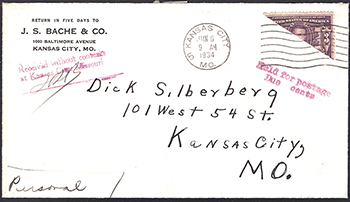 RETURN IN FIVE DAYS TO
J. S. BACHE & CO.
1000 BALTIMORE AVENUE
KANSAS CITY, MO.
Received without contents
at Kansas City, Missouri
KANSAS CITY
JUN 6
9 AM
1934
MO.
Held for postage
Due cents
Dick Silberberg
101 West 54 St.
Kansas City,
MO.
Personal